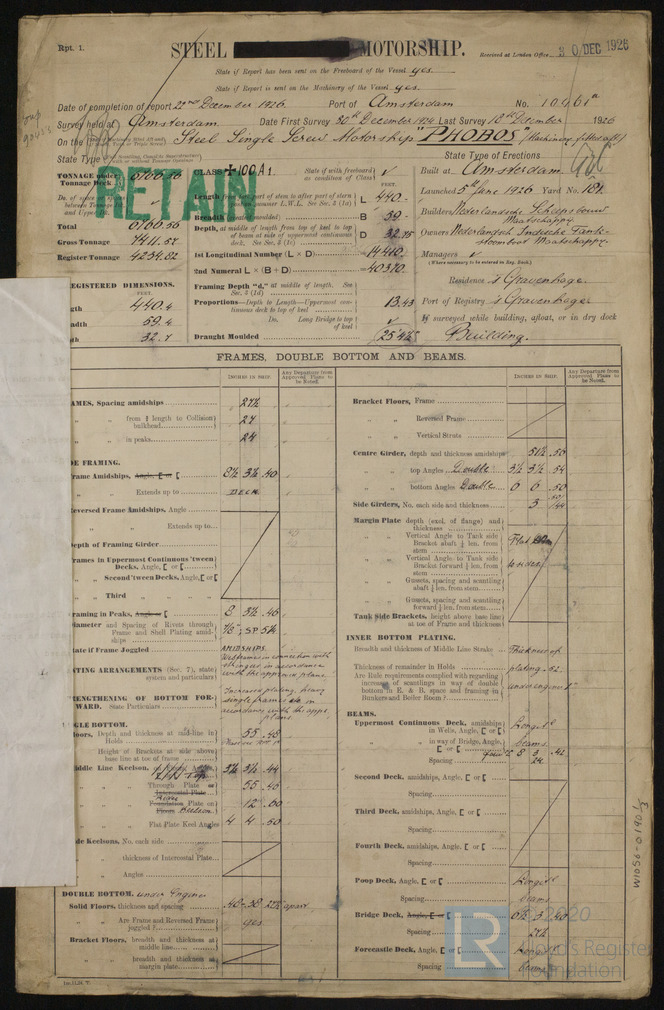 Rpt. 1.
STEEL MOTORSHIP.
Received at London Office 30 DEC 1926
State if Report has been sent on the Freeboard of the Vessel yes
State if Report is sent on the Machinery of the Vessel yes.
Date of completion of report 22nd December 1926. Port of Amsterdam No.
Survey held at Amsterdam. Date First Survey Last Survey December 1926
On the Steel Single Screw Motorship "PHOBOS" (Machinery fitted aft)
State Type
State Type of Erections
RETAIN
TONNAGE under Tonnage Deck
CLASS 100 A1.
State if with freeboard as condition of Class
Built at Amsterdam
Launched 5th June 1926 Yard No. 181.
L 440.
B 59.
D 32.75
Builders Nederlandsche Scheepsbouw Maatschappy.
Owners Nederlandsch Indische Tank-stoomboot Maatschappy.
Managers
Total
Gross Tonnage 7411.57
Register Tonnage 4234.82
1st Longitudinal Number (L × D) 14410
2nd Numeral L × (B + D) 40370
Framing Depth "d," at middle of length. See Sec. 3 (1d)
Proportions—Depth to Length—Uppermost continuous deck to top of keel 13.43
Do. Long Bridge to top of keel
Draught Moulded
Residence 's Gravenhage.
Port of Registry 's Gravenhage.
If surveyed while building, afloat, or in dry dock
Building.
REGISTERED DIMENSIONS.
FEET.
440.4
59.4
32.7
FRAMES, DOUBLE BOTTOM AND BEAMS.
INCHES IN SHIP.
Any Departure from Approved Plans to be Noted.
INCHES IN SHIP.
Any Departure from Approved Plans to be Noted.
AMES, Spacing amidships 27½
from ⅕ length to Collision bulkhead 27
in peaks 24
DE FRAMING.
Frame Amidships, Angle, 8½ 3½ .40
Extends up to DECK
Reversed Frame Amidships, Angle
Extends up to
Depth of Framing Girder
Frames in Uppermost Continuous 'tween Decks, Angle,
Second 'tween Decks, Angle,
Third
Framing in Peaks, Angle 8 3½ .46
Diameter and Spacing of Rivets through Frame and Shell Plating amidships 7/8", SP 5¼
State if Frame Joggled AMIDSHIPS
NTING ARRANGEMENTS (Sec. 7), state system and particulars Webframes in connection with stringers in accordance with the approved plans
RENGTHENING OF BOTTOM FORWARD. State Particulars Increased plating, heavy single frames in accordance with the appr. plans.
NGLE BOTTOM.
Floors, Depth and thickness at mid-line in Holds 55 .48
Height of Brackets at side above base line at toe of frame
Middle Line Keelson, Angles, 3½ 3½ .44
Through Plate or Intercostal Plate 55 .40
Foundation Plate on Floors 12 .60
Flat Plate Keel Angles 4 4 .50
Side Keelsons, No. each side
thickness of Intercostal Plate
Angles
DOUBLE BOTTOM. under Engines
Solid Floors, thickness and spacing .40-.38 27½ apart
Are Frame and Reversed Frame joggled? yes
Bracket Floors, breadth and thickness at middle line
breadth and thickness at margin plate
Bracket Floors, Frame
Reversed Frame
Vertical Struts
Centre Girder, depth and thickness amidships 51½ .50
top Angles Double 3½ 3½ .54
bottom Angles Double 6 6 .50
Side Girders, No. each side and thickness 3
Margin Plate depth (excl. of flange) and thickness
Vertical Angle to Tank side Bracket abaft ¼ len. from stem
Vertical Angle to Tank side Bracket forward ¼ len. from stem
Gussets, spacing and scantling abaft ¼ len. from stem
Gussets, spacing and scantling forward ¼ len. from stem
Tank Side Brackets, height above base line at toe of Frame and thickness
INNER BOTTOM PLATING.
Breadth and thickness of Middle Line Strake Thickness of
Thickness of remainder in Holds plating .52.
Are Rule requirements complied with regarding increase of scantlings in way of double bottom in E. & B. space and framing in Bunkers and Boiler Room? under engine 1"
BEAMS.
Uppermost Continuous Deck, amidships in Wells, Angle, Longitl
in way of Bridge, Angle, beams
Spacing
Second Deck, amidships, Angle,
Spacing
Third Deck, amidships, Angle,
Spacing
Fourth Deck, amidships, Angle,
Spacing
Poop Deck, Angle, Longitl
Spacing beams
Bridge Deck, Angle, 6½ 3 .40
Spacing 27½
Forecastle Deck, Angle, Longitl
Spacing beams
W1056-0190 1/3
LR
©2020
Lloyd's Register
Foundation